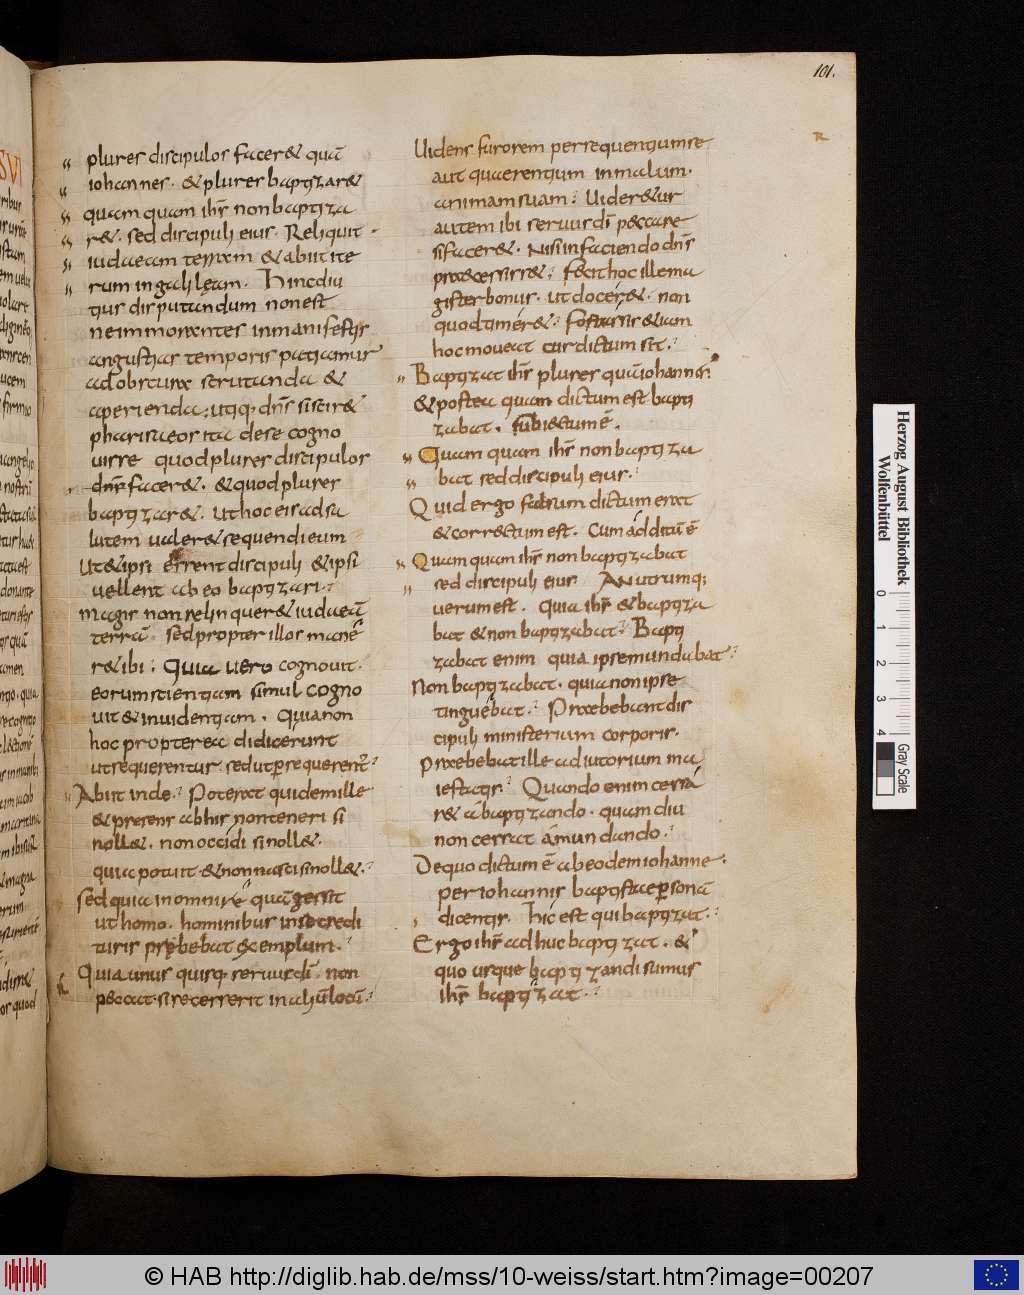 101.
plures discipulos facer& quā
iohannes · & plures baptizar&
quam quam ihs̄ non baptiza
r& · sed discipuli eius · Reliquit ·
iudaeam terram & abiit ite
rum in galilęam · Hinc diu
tius disputandum non est
ne immorantes in manifestis
angustias temporis patiamur
ad obscura scrutanda &
aperienda; utiq; dn̄s si scir&
phariseos ita de se cogno
uisse quod plures discipulos
facer& · & quod plures
baptizar& · ut hoc eis ad sa
lutem ualer& sequendi eum
Ut & ipsi essent discipuli & ipsi
uellent ab eo baptizari ·
magis non relinquer& iudaeā
terrā · sed propter illos manē
r& ibi · Quia uero cognouit ·
eorum scientiam simul cogno
uit & inuidentiam · Quia non
hoc propterea didicerunt
ut sequerentur · sed ut persequerent᷑
Abiit inde · Poterat quidem ille
& presens ab his non teneri si
noll& · non occidi si noll& ·
quia potuit · & non nasci si noll& ·
sed quia in omni re quā gessit
ut homo · hominibus in se credi
turis prebebat exemplum ·
Quia unus quisq; seruus dī · non
peccat · si recesserit in aliū locū ·
Uidens furorem persequentium se
aut quaerentium in malum ·
animam suam · Uider&ur
autem ibi seruus dī peccare
si facer& · Nisi in faciendo dn̄s
praecessiss& · fecit hoc ille ma
gister bonus · ut docer& · non
quod timer& · fortassis &iam
hoc moueat cur dictum sit ·
Baptizat ihs̄ plures quā iohannes
& postea quam dictum est bapti
zabat · subiectum ē ·
Quam quam ihs̄ non baptiza
bat sed discipuli eius ·
Quid ergo falsum dictum erat
& correctum est · Cum additū ē
Quam quam ihs̄ non baptizabat
sed discipuli eius · An utrumq;
uerum est · Quia ihs̄ & baptiza
bat & non baptizabat · Bapti
zabat enim quia ipse mundabat
Non baptizabat · quia non ipse
tinguebat · Praebebant dis
cipuli ministerium corporis ·
praebebat ille adiutorium ma
iestatis · Quando enim cessa
r& a baptizando · quam diu
non cessat a mundando ·
De quo dictum ē ab eodem iohanne ·
per iohannis baptistae personā
dicentis · Hic est qui baptizat ·
Ergo ihs̄ adhuc baptizat · &
quo usque baptizandi sumus
ihs̄ baptizat ·
Herzog August Bibliothek
Wolfenbüttel
0 1 2 3 4
Gray Scale
© HAB http://diglib.hab.de/mss/10-weiss/start.htm?image=00207